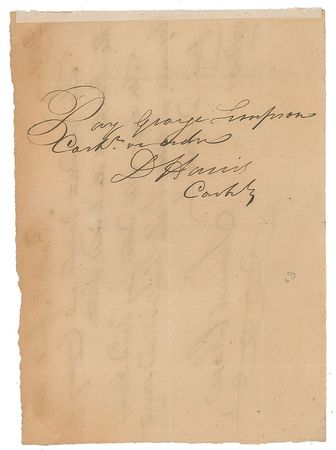 Pay George Simpson
Cashr. or order
D Harris
Cashr.
63